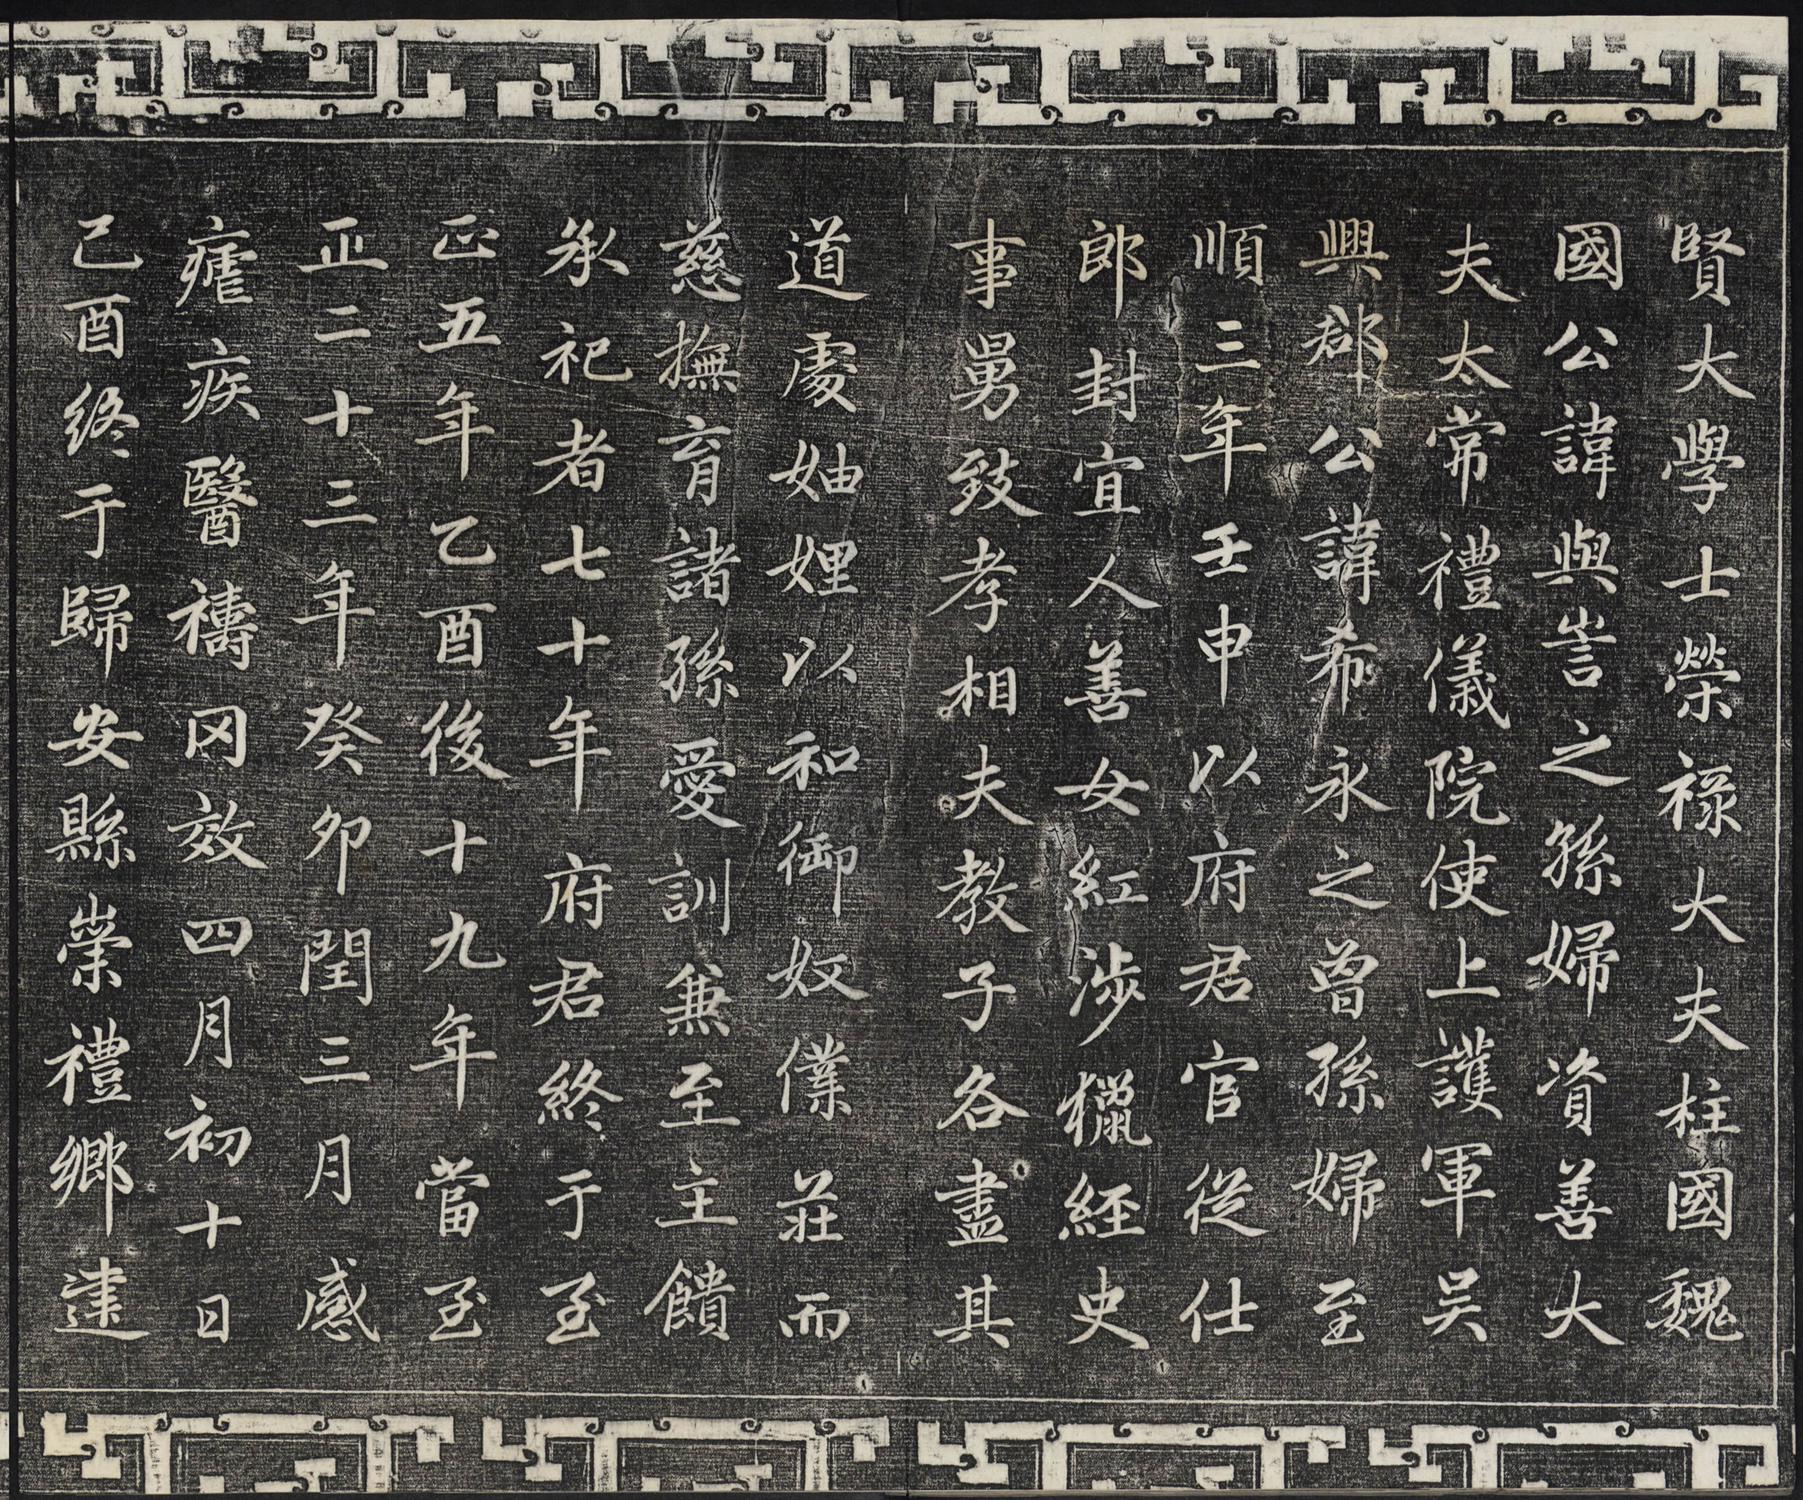 賢大學士榮祿大夫柱國魏
國公諱與訔之孫婦資善大
夫太常禮儀院使上護軍吴
興郡公諱希永之曾孫婦至
順三年壬申以府君官從仕
郎封宜人善女紅涉獵經史
事舅致孝相夫教子各盡其
道處妯娌以和御奴僕莊而
慈撫育諸孫愛訓兼至主饋
承祀者七十年府君終于至
正五年乙酉後十九年當至
正二十三年癸卯閏三月感
瘧疾醫禱罔效四月初十日
己酉終于歸安縣崇禮鄉達